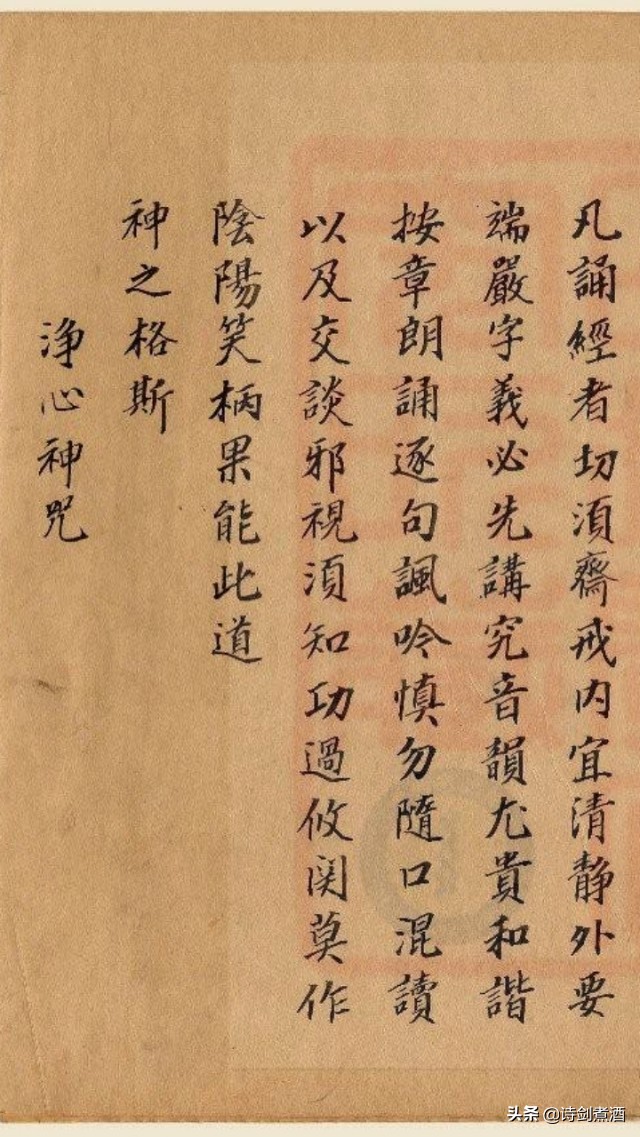 凡誦經者切須齋戒内宜清静外要
端嚴字義必先講究音韻尤貴和諧
按章朗誦逐句諷吟慎勿隨口混讀
以及交談邪視須知功過攸関莫作
陰陽笑柄果能此道
神之格斯
浄心神咒
头条 @诗剑煮酒